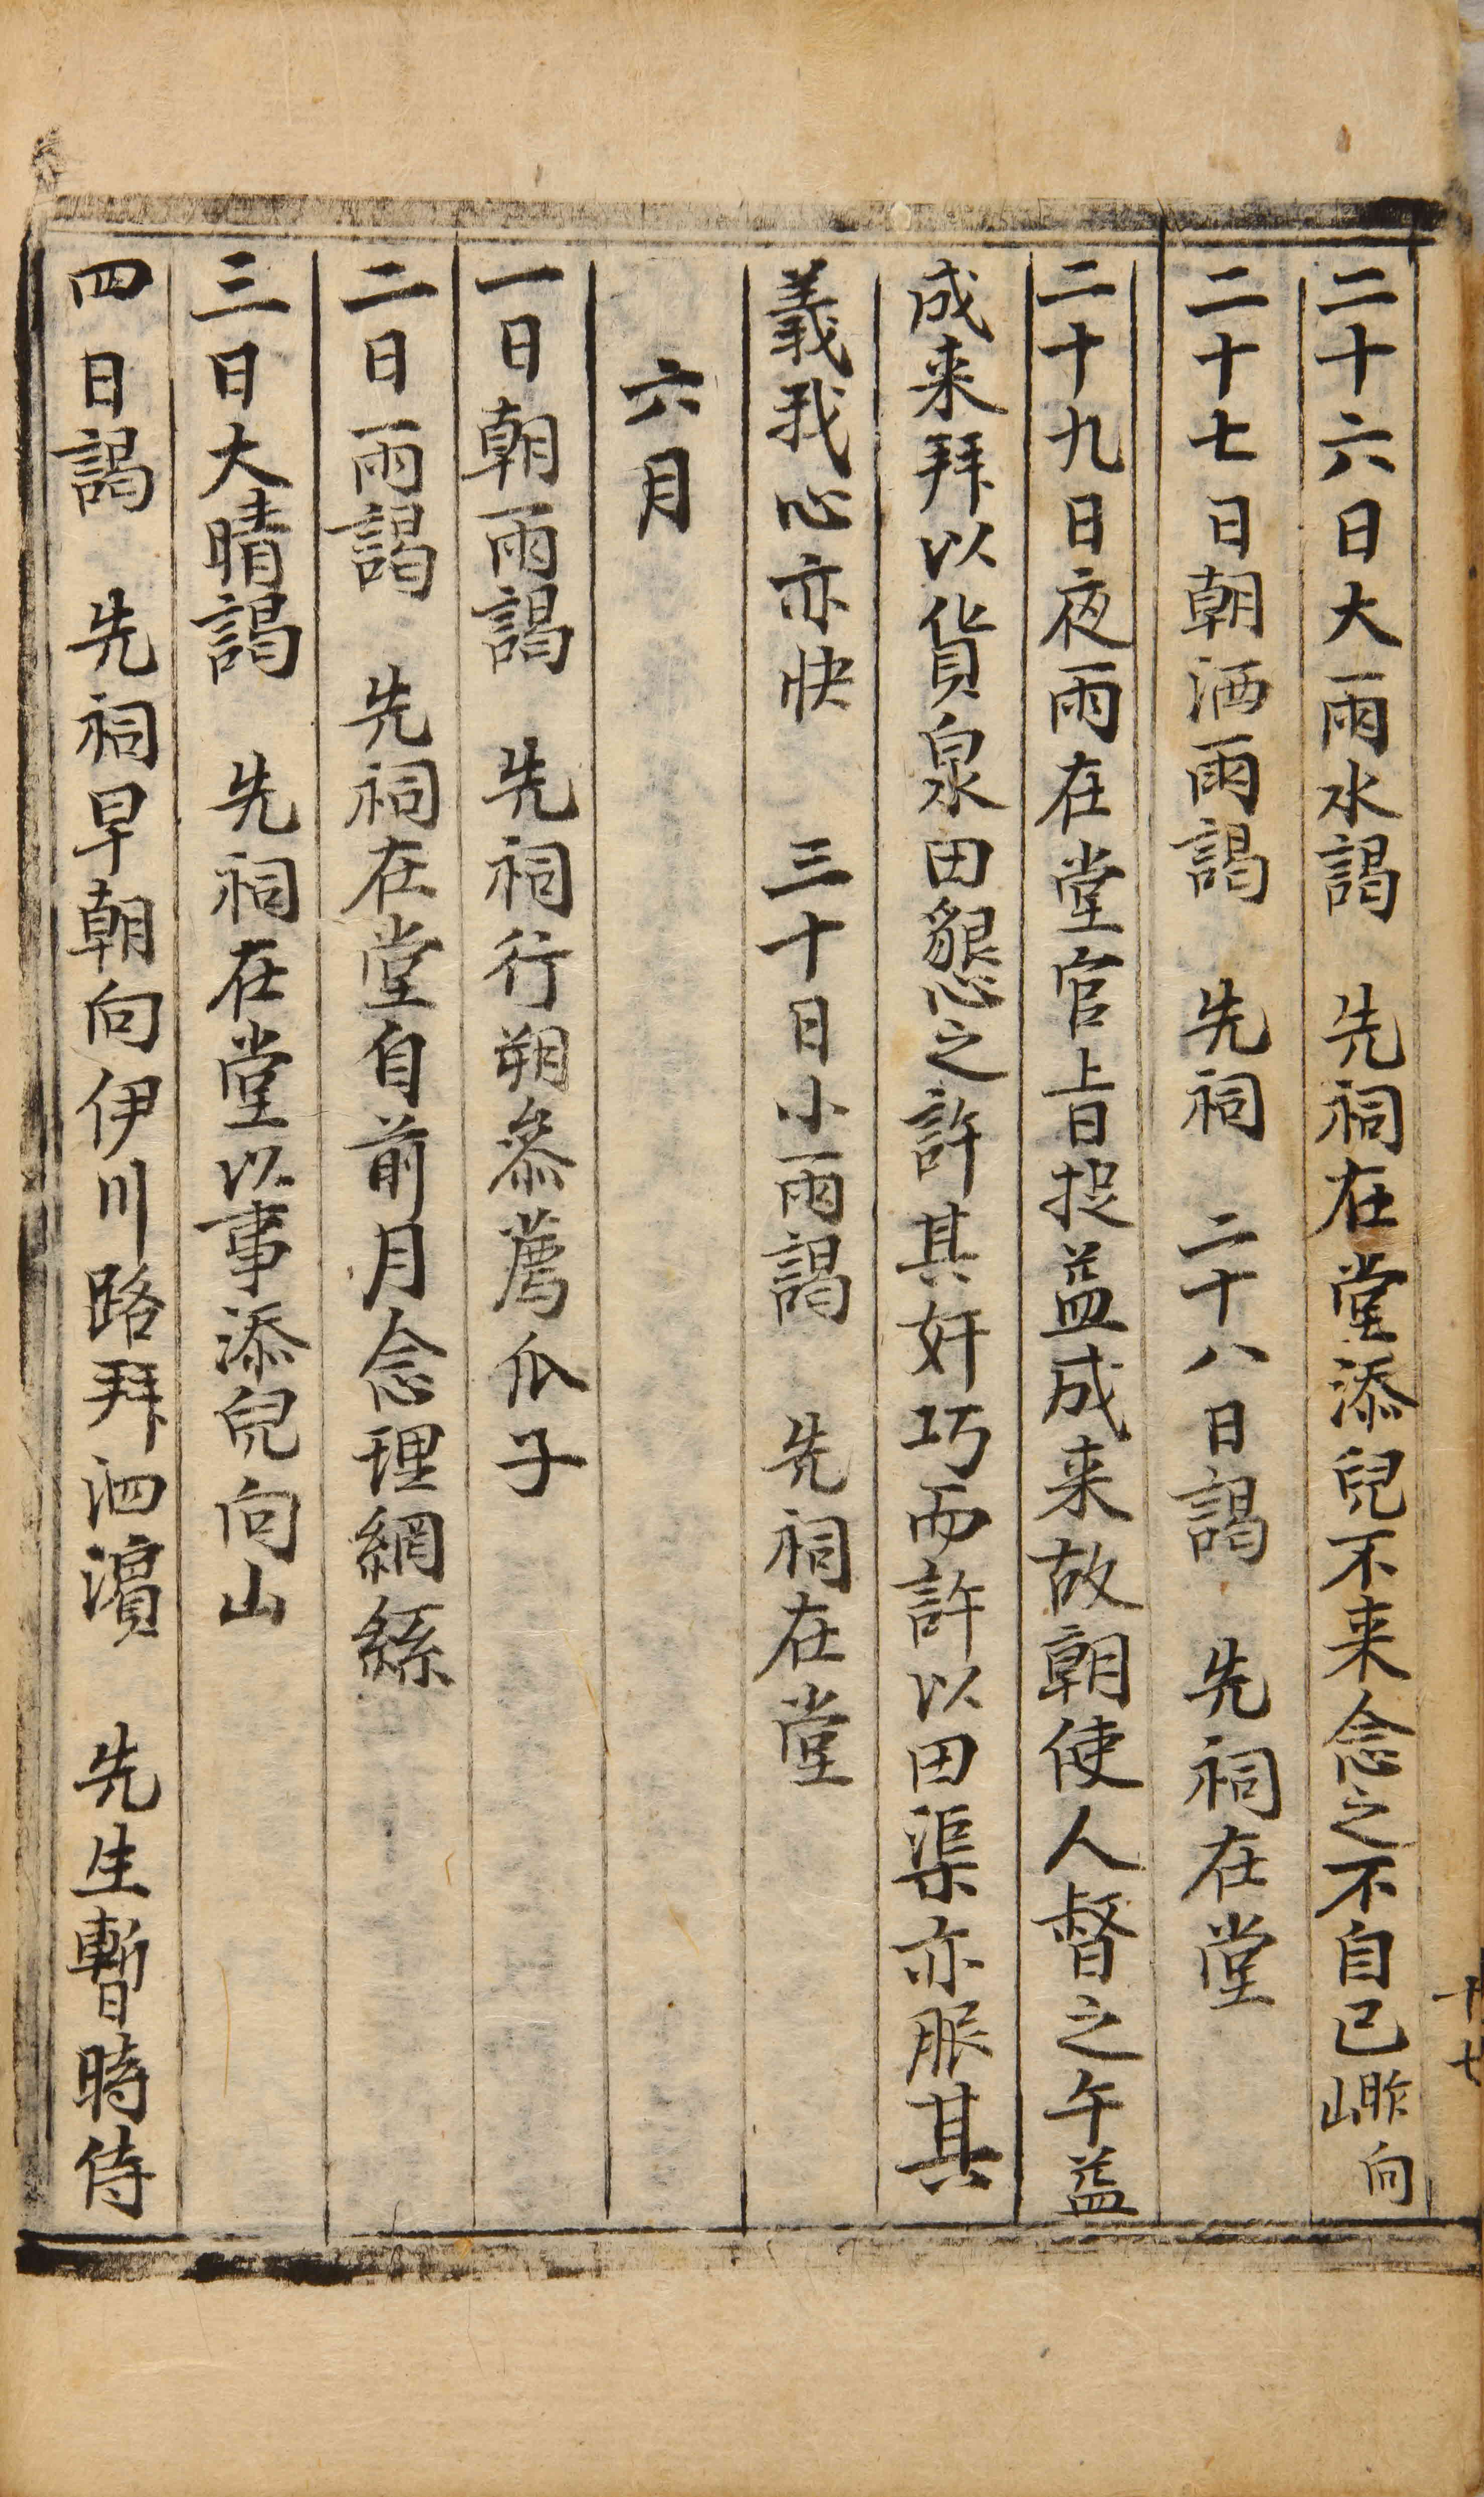 二十六日大雨水謁　先祠在堂添兒不来念之不自已昨向山
二十七日朝洒雨謁　先祠　二十八日謁　先祠在堂
二十九日夜雨在堂官旨捉益成来故朝使人督之午益
成来拜以貨泉田懇之許其奸巧而許以田渠亦服其
義我心亦快　三十日小雨謁　先祠在堂
六月
一日朝雨謁　先祠行朔叅薦瓜子
二日雨謁　先祠在堂自前月念理網絲
三日大晴謁　先祠在堂以事添兒向山
四日謁　先祠早朝向伊川路拜泗濱　先生暫時侍
十七